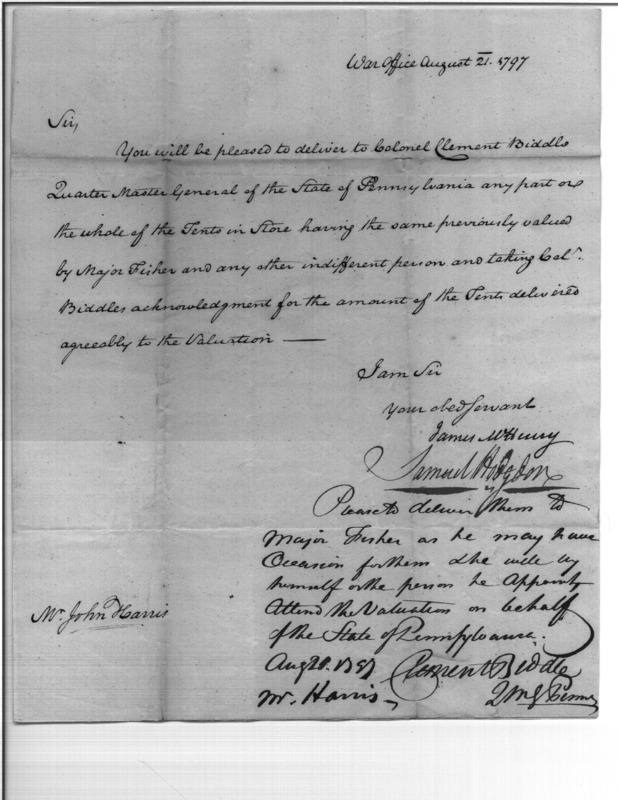 War Office August 21. 1797
Sir,
You will be pleased to deliver to Colonel Clement Biddle
Quarter Master General of the State of Pennsylvania any part or
the whole of the Tents in Store having the same previously valued
by Major Fisher and any other indifferent person and taking Col.
Biddles acknowledgment for the amount of the Tents delivered
agreeably to the Valuation —
I am Sir
Your obed Servant
James McHenry
Samuel Hodgdon
Please to deliver them to
Major Fisher as he may have
Occasion for them & he will by
himself or the person he Appoints
Attend the Valuation on behalf
of the State of Pennsylvania.
Mr John Harris
Aug 1797 Clement Biddle
Mr. Harris QMG Penna